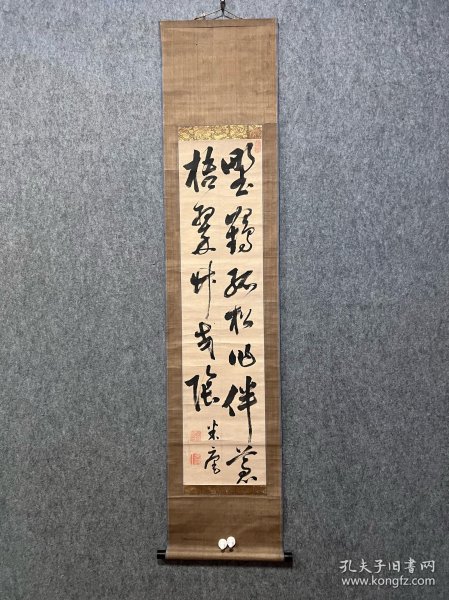 野鶴孤松作伴蒼
梧翠竹交陰
米庵
孔夫子旧书网
www.kongfz.com